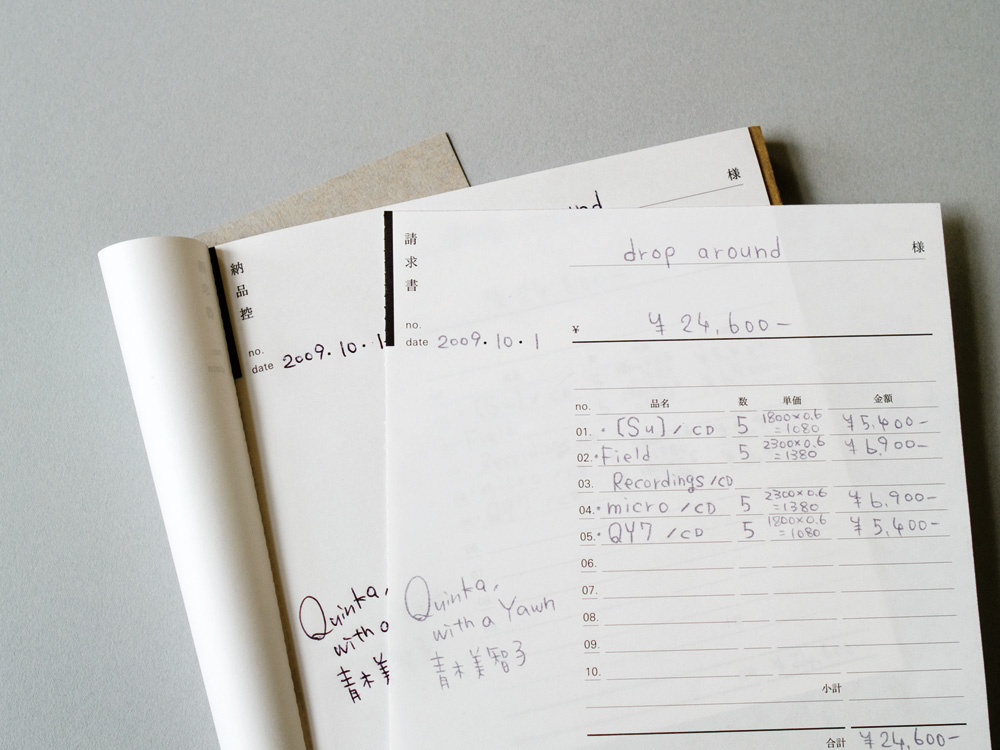 様
納品控
no.
date 2009.10.1
Quinka,
with a
青木美
請求書
drop around 様
no.
date 2009.10.1
¥ ¥24,600-
no. 品名 数 単価 金額
01. ・[Su]/CD 5 1800×0.6=1080 ¥5,400-
02. ・Field 5 2300×0.6=1380 ¥6,900-
03. Recordings/CD
04. ・micro/CD 5 2300×0.6=1380 ¥6,900-
05. ・QY7/CD 5 1800×0.6=1080 ¥5,400-
06.
07.
08.
09.
10.
小計
合計 ¥24,600-
Quinka,
with a Yawn
青木美智子